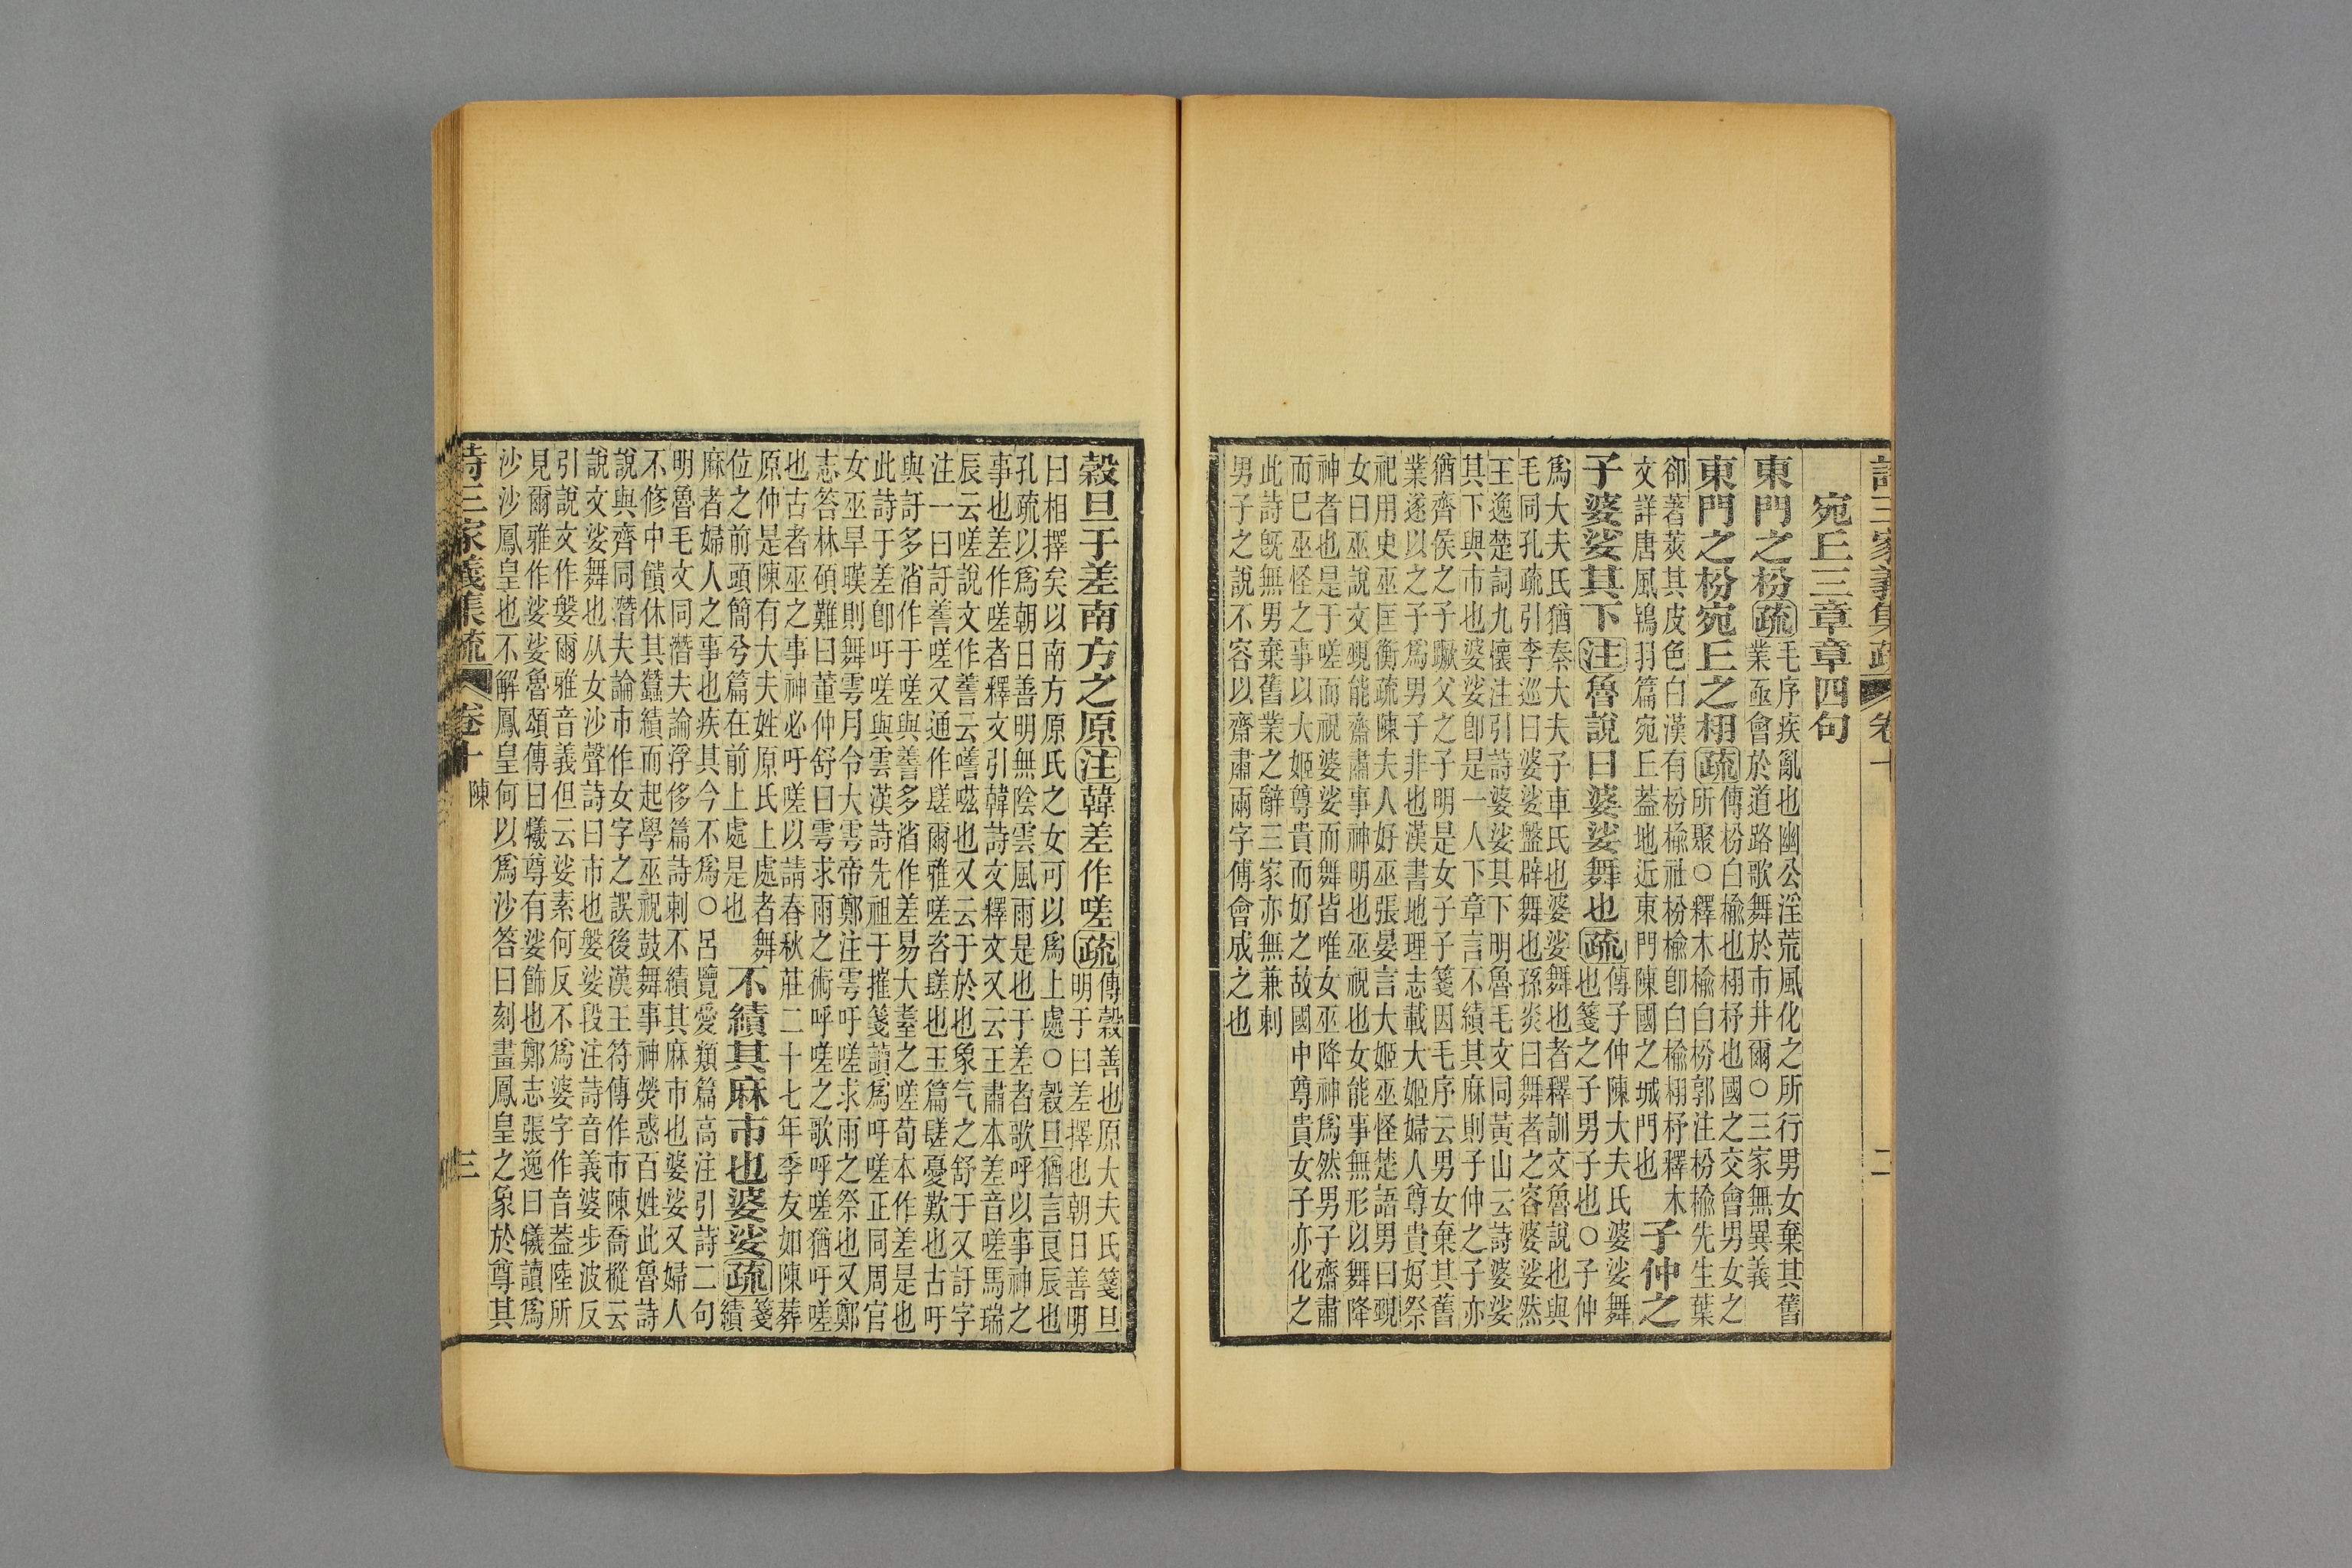 詩三家義集疏 卷十 二
宛丘三章章四句
東門之枌疏毛序疾亂也幽公淫荒風化之所行男女棄其舊
業亟會於道路歌舞於市井爾○三家無異義
東門之枌宛丘之栩疏傳枌白榆也栩杼也國之交會男女之
所聚○釋木榆白枌郭注枌榆先生葉
卻著莢其皮色白漢有枌榆社枌榆卽白榆栩杼釋木
文詳唐風鴇羽篇宛丘葢地近東門陳國之城門也
子仲之
子婆娑其下注魯說曰婆娑舞也疏傳子仲陳大夫氏婆娑舞
也箋之子男子也○子仲
爲大夫氏猶秦大夫子車氏也婆娑舞也者釋訓文魯說也與
毛同孔疏引李巡曰婆娑盤辟舞也孫炎曰舞者之容婆娑然
王逸楚詞九懷注引詩婆娑其下明魯毛文同黃山云詩婆娑
其下與市也婆娑卽是一人下章言不績其麻則子仲之子亦
猶齊侯之子蹶父之子明是女子子箋因毛序云男女棄其舊
業遂以之子爲男子非也漢書地理志載大姬婦人尊貴好祭
祀用史巫匡衡疏陳夫人好巫張晏言大姬巫怪楚語男曰覡
女曰巫說文覡能齋肅事神明也巫祝也女能事無形以舞降
神者也是于嗟而視婆娑而舞皆唯女巫降神爲然男子齋肅
而已巫怪之事以大姬尊貴而好之故國中尊貴女子亦化之
此詩旣無男棄舊業之辭三家亦無兼刺
男子之說不容以齋肅兩字傅會成之也
穀旦于差南方之原注韓差作嗟疏傳穀善也原大夫氏箋旦
明于曰差擇也朝日善明
曰相擇矣以南方原氏之女可以爲上處○穀旦猶言良辰也
孔疏以爲朝日善明無陰雲風雨是也于差者歌呼以事神之
事也差作嗟者釋文引韓詩文釋文又云王肅本差音嗟馬瑞
辰云嗟說文作𧪯云𧪯嗞也又云于於也象气之舒于又訏字
注一曰訏𧪯嗟又通作𨲠爾雅嗟咨𨲠也玉篇𨲠憂歎也古吁
與訏多渻作于嗟與𧪯多渻作差易大耋之嗟荀本作差是也
此詩于差卽吁嗟與雲漢詩先祖于摧箋讀爲吁嗟正同周官
女巫旱暵則舞雩月令大雩帝鄭注雩吁嗟求雨之祭也又鄭
志答林碩難曰董仲舒曰雩求雨之術呼嗟之歌呼嗟猶吁嗟
也古者巫之事神必吁嗟以請春秋莊二十七年季友如陳葬
原仲是陳有大夫姓原氏上處者舞
位之前頭簡兮篇在前上處是也
不績其麻市也婆娑疏箋
績
麻者婦人之事也疾其今不爲○呂覽愛類篇高注引詩二句
明魯毛文同潛夫論浮侈篇詩刺不績其麻市也婆娑又婦人
不修中饋休其蠶績而起學巫祝鼓舞事神熒惑百姓此魯詩
說與齊同潛夫論市作女字之誤後漢王符傳作市陳喬樅云
說文娑舞也从女沙聲詩曰市也媻娑段注詩音義婆步波反
引說文作媻爾雅音義但云娑素何反不爲婆字作音葢陸所
見爾雅作娑娑魯頌傳曰犧尊有娑飾也鄭志張逸曰犧讀爲
沙沙鳳皇也不解鳳皇何以爲沙答曰刻畫鳳皇之象於尊其
詩三家義集疏 卷十 陳 三